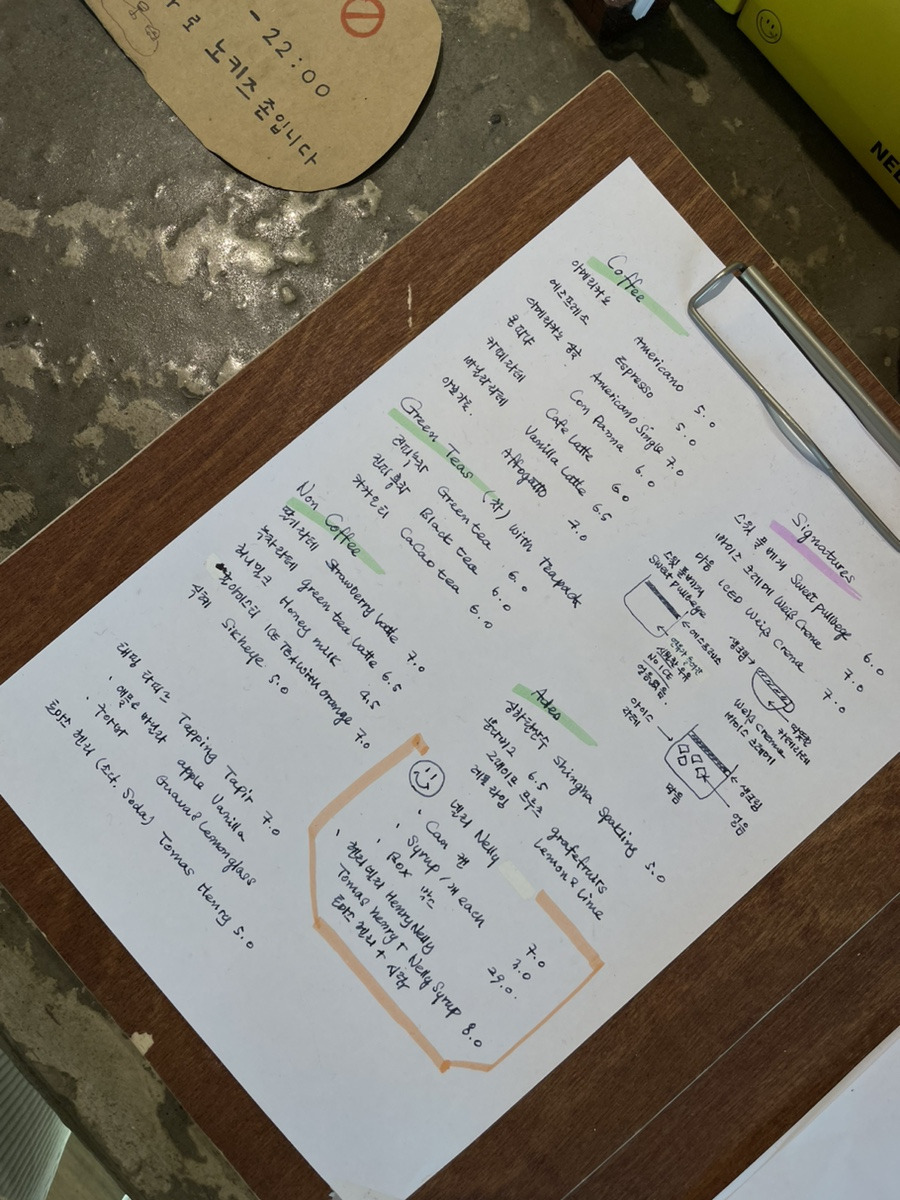 - 22:00
로 노키즈존입니다
NEE
Coffee
아메리카노 Americano 5.0
에스프레소 Espresso 5.0
아메리카노 싱글 Americano Single 7.0
콘파나 Con Panna 6.0
카페라떼 Cafe Latte 6.0
바닐라라떼 Vanilla Latte 6.5
아포가토 Affogatto 7.0
Green Teas (차) with Teapack
Green tea 6.0
Black tea 6.0
카카오티 CaCao tea 6.0
Non Coffee
딸기라떼 Strawberry latte 7.0
녹차라떼 green tea latte 6.5
허니밀크 Honey milk 4.5
아이스티 ICE TEA with orange 7.0
식혜 Sikheye 5.0
태핑 타피르 Tapping Tapir 7.0
· 애플&바닐라 apple Vanilla
· 구아바 Guava & Lemonglass
토마스 헨리 (Ect. Soda) Tomas Henry 5.0
Signatures
스윗 풀베게 Sweet pullbege 6.0
바이스 크레메 Weiß Creme 7.0
아응 ICED Weiß Creme 7.0
스윗 풀베게
Sweet pullbege
←에스프레소
No ICE
얼음없음
생크림→
←따뜻한
카페라떼
Weiß Creme
바이스 크레메
아이스
라떼
←생크림
얼음
아응
Ades
싱하탄산수 Shingha Spakling 5.0
6.5
자몽 grafefruits
레몬라임 Lemon & Lime
넬리 Nelly
· Can 캔 7.0
· Syrup / 개 each 3.0
· Box 박스 29.0
· 헨리넬리 Henry Nelly
Tomas Henry + Nelly Syrup 8.0
토마스 헨리 + 시럽